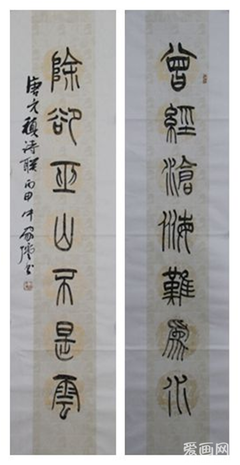 曾經滄海難為水
除卻巫山不是雲
唐元稹詩聯丙申
爱画网